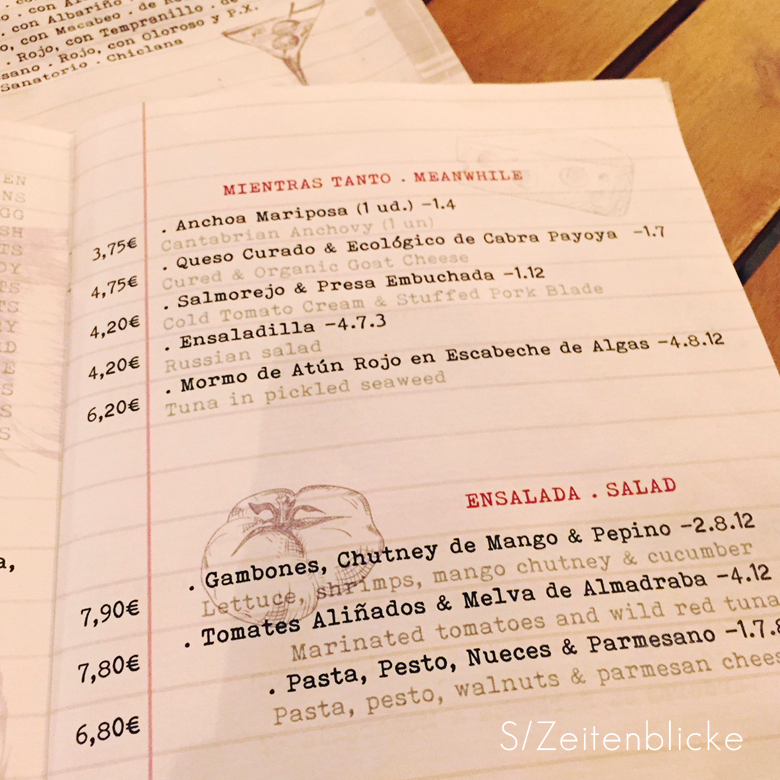 con Albariño
, con Macabeo . de
. Rojo, con Tempranillo .
sano . Rojo, con Oloroso y P.X.
Sanatorio . Chiclana
EN
NS
GG
SH
TS
DY
TS
TS
RY
D
E
S
S
S
S
a,
MIENTRAS TANTO . MEANWHILE
. Anchoa Mariposa (1 ud.) -1.4
3,75€ Cantabrian Anchovy (1 un)
. Queso Curado & Ecológico de Cabra Payoya -1.7
4,75€ Cured & Organic Goat Cheese
. Salmorejo & Presa Embuchada -1.12
4,20€ Cold Tomato Cream & Stuffed Pork Blade
. Ensaladilla -4.7.3
4,20€ Russian salad
. Mormo de Atún Rojo en Escabeche de Algas -4.8.12
6,20€ Tuna in pickled seaweed
ENSALADA . SALAD
. Gambones, Chutney de Mango & Pepino -2.8.12
7,90€ Lettuce, shrimps, mango chutney & cucumber
. Tomates Aliñados & Melva de Almadraba -4.12
7,80€ Marinated tomatoes and wild red tuna
. Pasta, Pesto, Nueces & Parmesano -1.7.8
6,80€ Pasta, pesto, walnuts & parmesan chees
S/Zeitenblicke